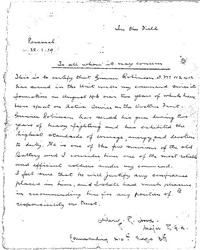 In the Field
Personal
28.1.19.
To all whom it may concern
This is to certify that Gunner Robinson, J. M.
has served in the Unit under my command since its
formation in August 1916 over two years of which have
been spent on Active Service as
Gunner Robinson has served his guns during two
years of heavy fighting and has exhibited the
highest standards of courage, energy and devotion
to duty. He is one of the few survivors of the old
Battery and I consider him one of the most reliable
and efficient soldiers under my command.
I feel sure that he will justify any confidence
placed in him, and I shall have much pleasure
in recommending him for any position of
responsibility or Trust.
Major R.G.A.
Commanding Siege Bty